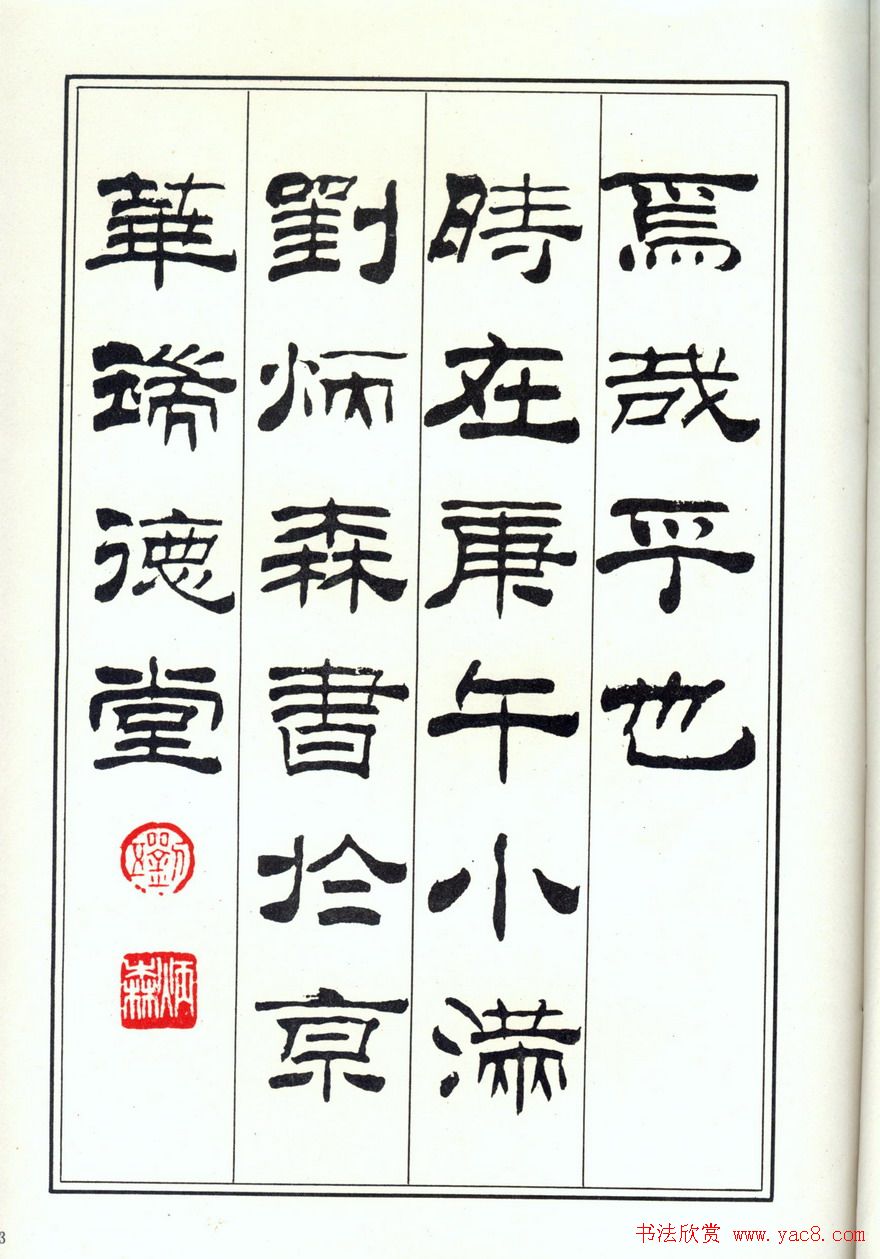 焉哉乎也
時在庚午小滿
劉炳森書於京
華德堂
劉
炳森
3
书法欣赏 www.yac8.com